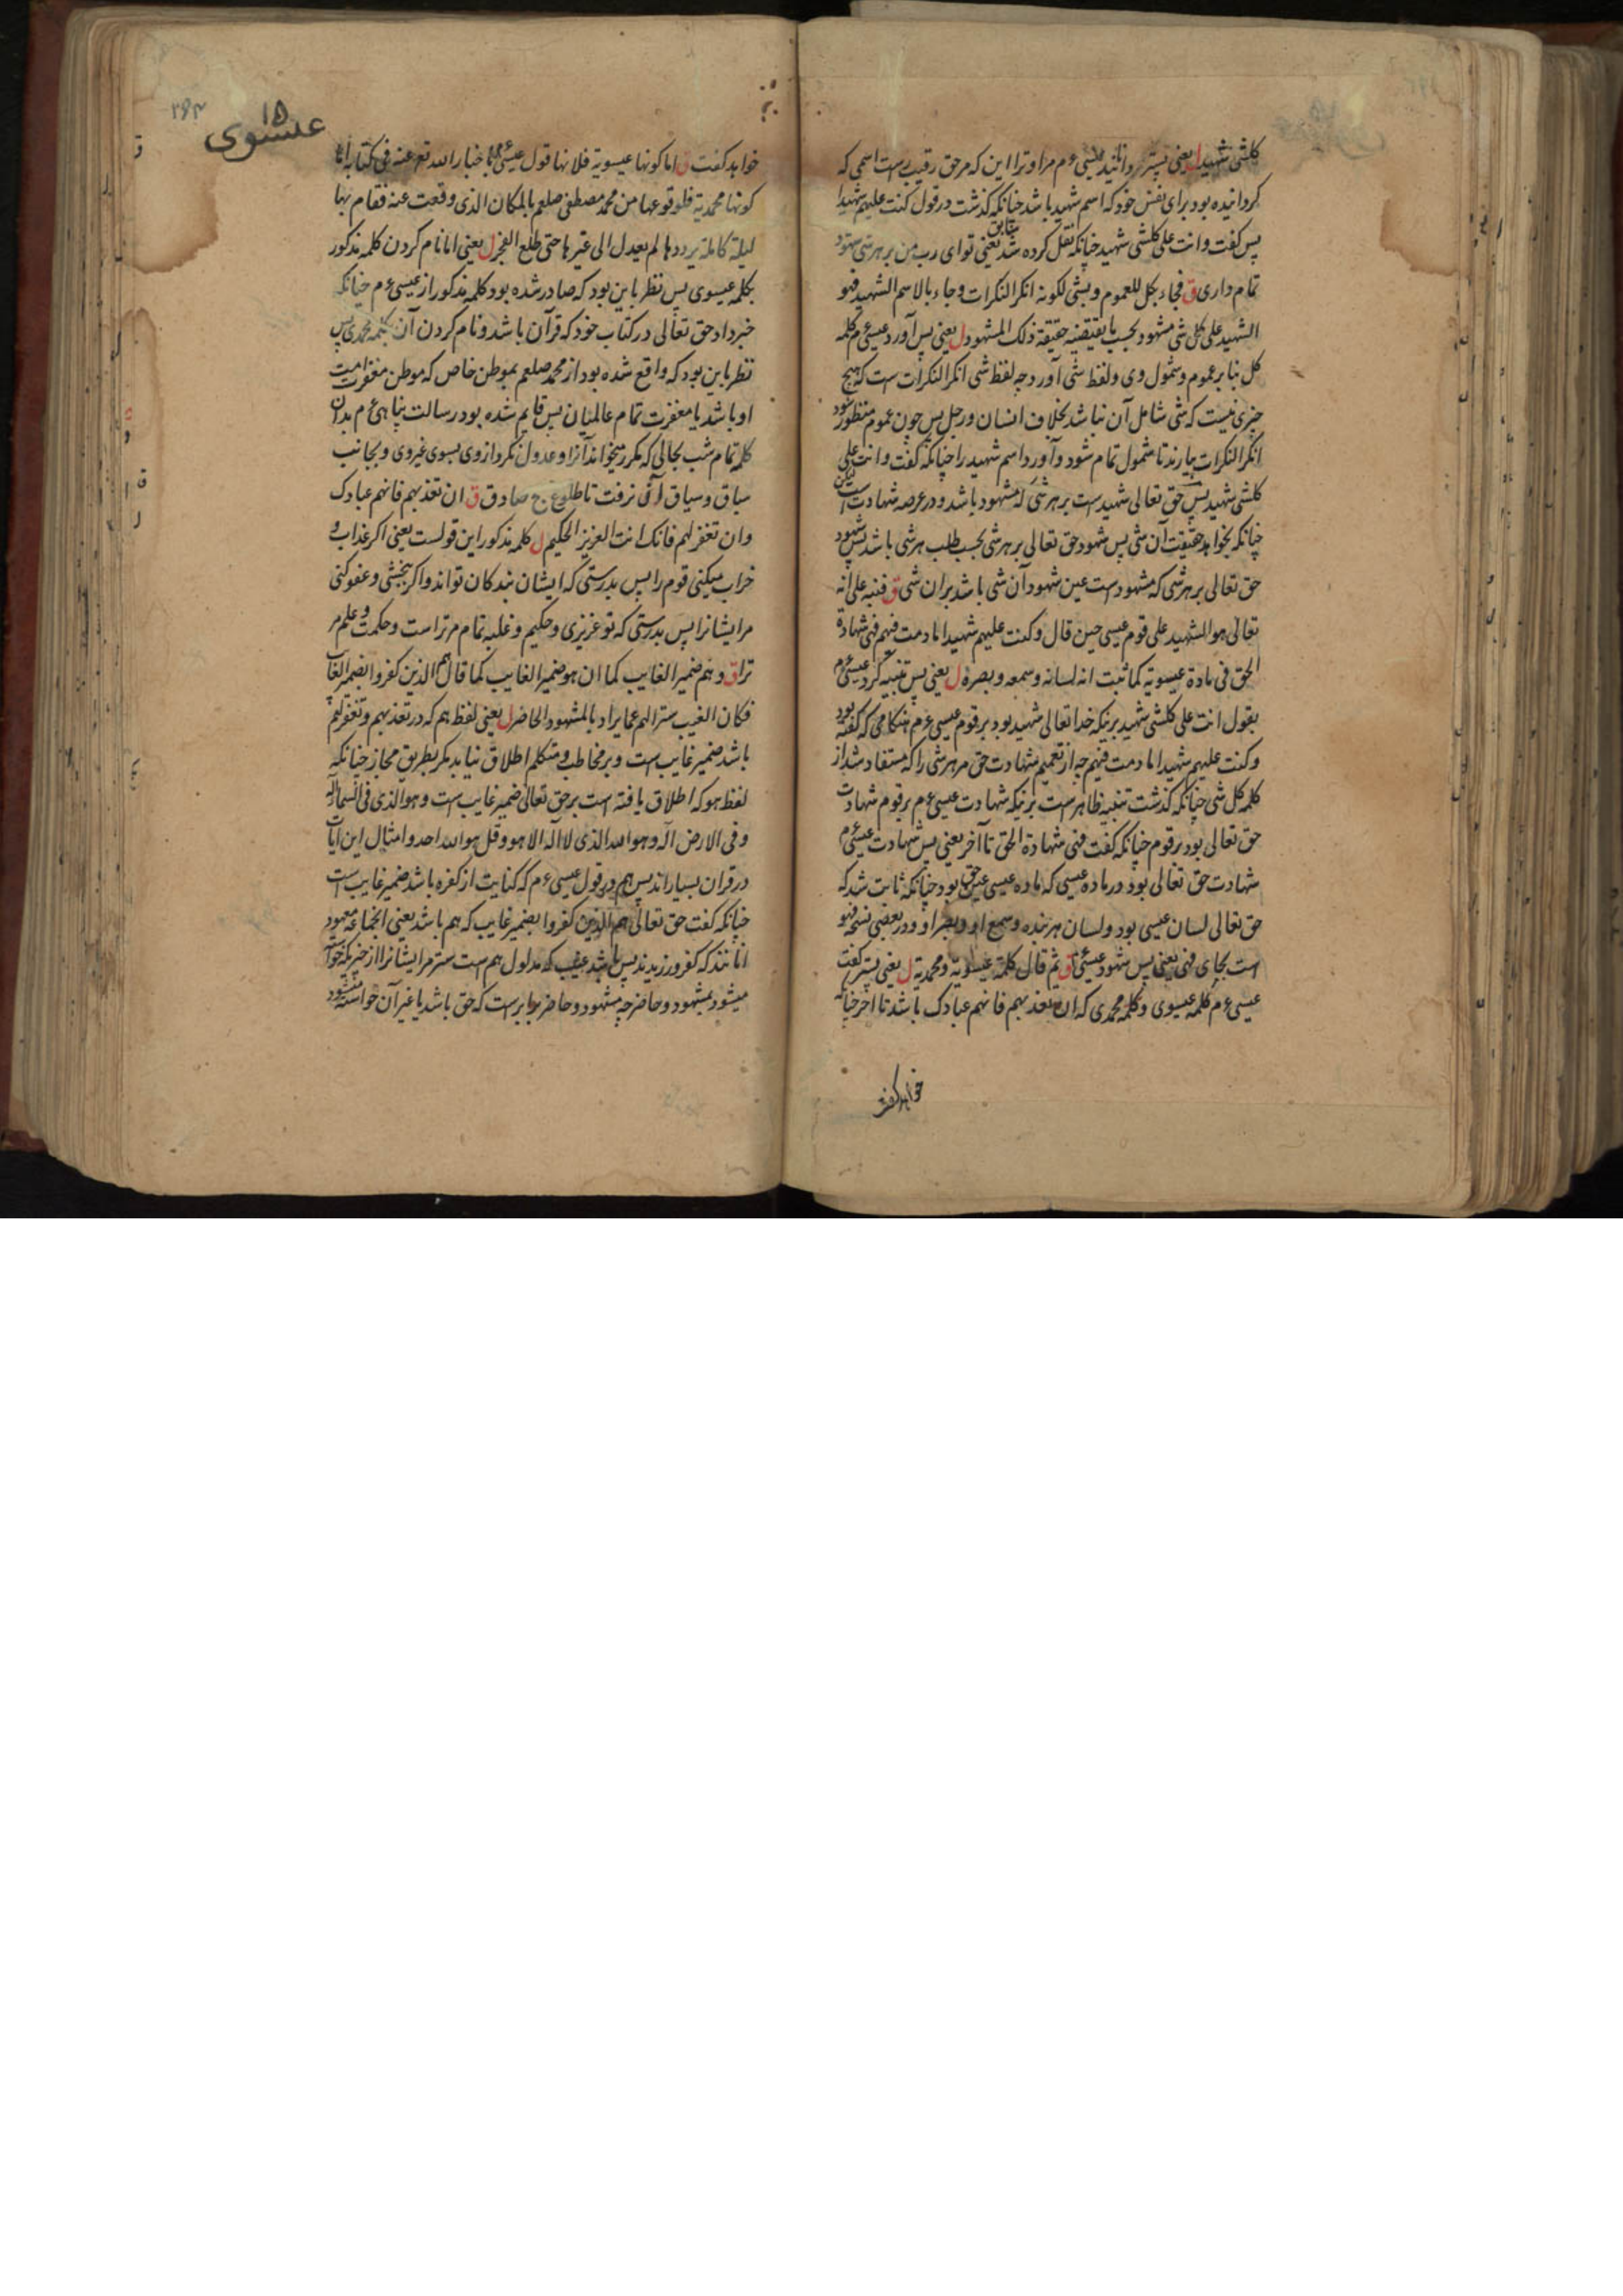 کلشی شهیدا ل یعنی پستر گردانید عیسی عم مراو ترا این که مر حق رقیب ست اسمی که
گردانیده بود برای نفس خود که اسم شهید باشد چنانکه گذشت در قول کنت علیهم شهیدا
پس گفت و انت علی کلشی شهید چنانکه نقل کرده شد سابق یعنی تو ای رب من بر هر شی شهود
تمام داری ق فجاء بکل للعموم و بشی لکونه انکر النکرات و جاء بالاسم الشهید فهو
الشهید علی کل شی مشهود بحسب ما یقتضیه حقیقة ذلک المشهود ل یعنی پس آورد عیسی عم کلمه
کل بنا بر عموم و شمول وی و لفظ شی آورد چه لفظ شی انکر النکرات ست که هیچ
چیزی نیست که شی شامل آن نباشد بخلاف انسان و رجل پس چون عموم منظور بود
انکر النکرات بیارند تا شمول تمام شود و آورد اسم شهید را چنانکه گفت و انت علی
کلشی شهید پس حق تعالی شهید ست بر هر شی که مشهود باشد و در عرصه شهادت است لیکن
چنانکه بخواهد حقیقت آن شی پس شهود حق تعالی بر هر شی بحسب طلب هر شی باشد پس شهود
حق تعالی بر هر شی که مشهود ست عین شهود آن شی باشد بران شی ق فنبه علی انه
تعالی هو الشهید علی قوم عیسی حین قال و کنت علیهم شهیدا ما دمت فیهم فهی شهادة
الحق فی مادة عیسویة کما ثبت انه لسانه و سمعه و بصره ل یعنی پس تنبیه کرد عیسی عم
بقول انت علی کلشی شهید برینکه خدا تعالی شهید بود بر قوم عیسی عم هنگامی که گفته بود
و کنت علیهم شهیدا ما دمت فیهم چه از تعمیم شهادت حق مر هر شی را که مستفاد شد از
کلمه کل شی چنانکه گذشت تنبیه ظاهر ست برینکه شهادت عیسی عم بر قوم شهادت
حق تعالی بود بر قوم چنانکه گفت فهی شهادة الحق تا آخر یعنی پس شهادت عیسی عم
شهادت حق تعالی بود در ماده عیسی که ماده عیسی عین حق بود چنانکه ثابت شد که
حق تعالی لسان عیسی بود و لسان هر بنده و سمع او و بصر او و در بعضی نسخه فهو
است بجای فهی یعنی پس شهود عیسی ق ثم قال کلمة عیسویة و محمدیة ل یعنی پستر گفت
عیسی عم کلمه عیسوی و کلمه محمدی که ان تعذبهم فانهم عبادک باشد تا آخر چنانکه
خواهد گفت
۲۹۳
۱۵
عیسوی
خواهد گفت ق اما کونها عیسویة فلانها قول عیسی عم باخبار الله تع عنه فی کتابه و اما
کونها محمدیة فلوقوعها من محمد مصطفی صلعم بالمکان الذی وقعت عنه فقام بها
لیلة کاملة یرددها لم یعدل الی غیرها حتی طلع الفجر ل یعنی اما نام کردن کلمه مذکور
بکلمه عیسوی پس نظر باین بود که صادر شده بود کلمه مذکور از عیسی عم چنانکه
خبر داد حق تعالی در کتاب خود که قرآن باشد و نام کردن آن بکلمه محمدی پس
نظر باین بود که واقع شده بود از محمد صلعم بموطن خاص که موطن مغفرت امت
او باشد یا مغفرت تمام عالمیان پس قایم شده بود رسالت پناهی عم بدان
کلمه تمام شب بحالی که مکرر میخواند آنرا و عدول نکرد از وی بسوی غیر وی و بجانب
سباق و سیاق آن نرفت تا طلوع صبح صادق ق ان تعذبهم فانهم عبادک
و ان تغفر لهم فانک انت العزیز الحکیم ل کلمه مذکور این قولست یعنی اگر عذاب و
خراب میکنی قوم را پس بدرستی که ایشان بندگان تواند و اگر بخشی و عفو کنی
مر ایشانرا پس بدرستی که تو عزیزی و حکیم و غلبه تمام مر تراست و حکمت و علم مر
ترا ق و هم ضمیر الغایب کما ان هو ضمیر الغایب کما قال هم الذین کفروا بضمیر الغایب
فکان الغیب سترا لهم عما یراد بالمشهود الحاضر ل یعنی لفظ هم که در تعذبهم و تغفر لهم
باشد ضمیر غایب ست و بر مخاطب و متکلم اطلاق نیابد مگر بطریق مجاز چنانکه
لفظ هو که اطلاق یافته است بر حق تعالی ضمیر غایب ست و هو الذی فی السماء اله
و فی الارض اله و هو الله الذی لا اله الا هو و قل هو الله احد و امثال این آیات
در قران بسیار اند پس هم در قول عیسی عم که کنایت از کفره باشد ضمیر غایب ست
چنانکه گفت حق تعالی هم الذین کفروا بضمیر غایب که هم باشد یعنی انجماعه معهود
آنانند که کفر ورزیدند پس باشد غیب که مدلول هم ست ستر مر ایشانرا از چیزیکه خواسته
میشود بمشهود و حاضر چه مشهود و حاضر برابر ست که حق باشد یا غیر آن خواسته میشود